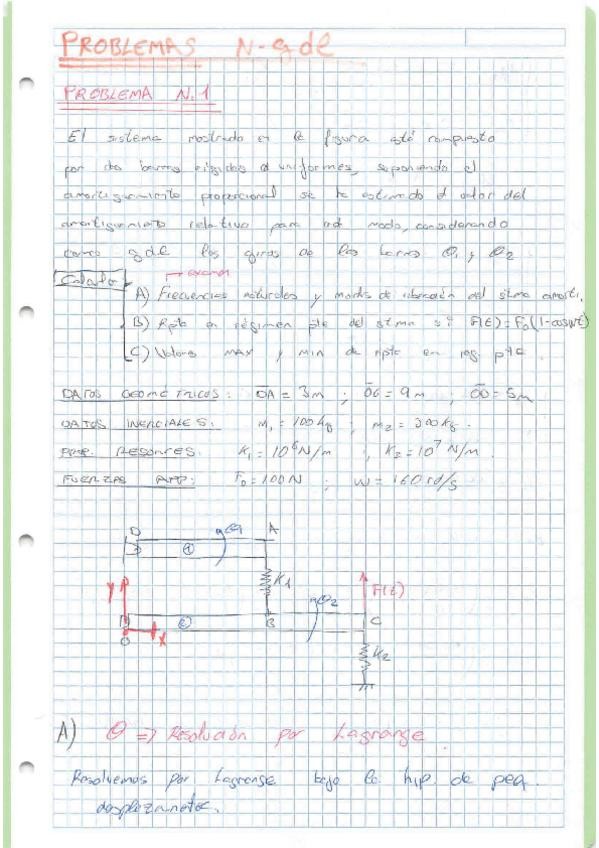 PROBLEMAS N-gdl
PROBLEMA N.1
El sistema mostrado en la figura está compuesto
por dos barras rígidas uniformes, suponiendo el
amortiguamiento proporcional se ha estimado el valor del
amortiguamiento relativo para cada modo, considerando
como gdl los giros de las barras θ1 y θ2
→ examen
Calcular:
A) Frecuencias naturales y modos de vibración del stma amorti.
B) Rpta en régimen pte del stma si F(t) = F0(1-coswt)
C) Valores MAX y MIN de rpta en reg. pte.
DATOS GEOMÉTRICOS: DA = 3m ; OC = 9m ; OD = 5m
DATOS INERCIALES: m1 = 100kg ; m2 = 300kg.
PROP. RESORTES: K1 = 10^6 N/m ; K2 = 10^7 N/m.
FUERZAS APP: F0 = 100N ; W = 160 rd/s
D θ1 A
1
K1
Y θ2 F(t)
2 B C
O X
K2
A) θ => Resolución por Lagrange.
Resolvemos por Lagrange bajo la hip. de peq.
desplazamntos.